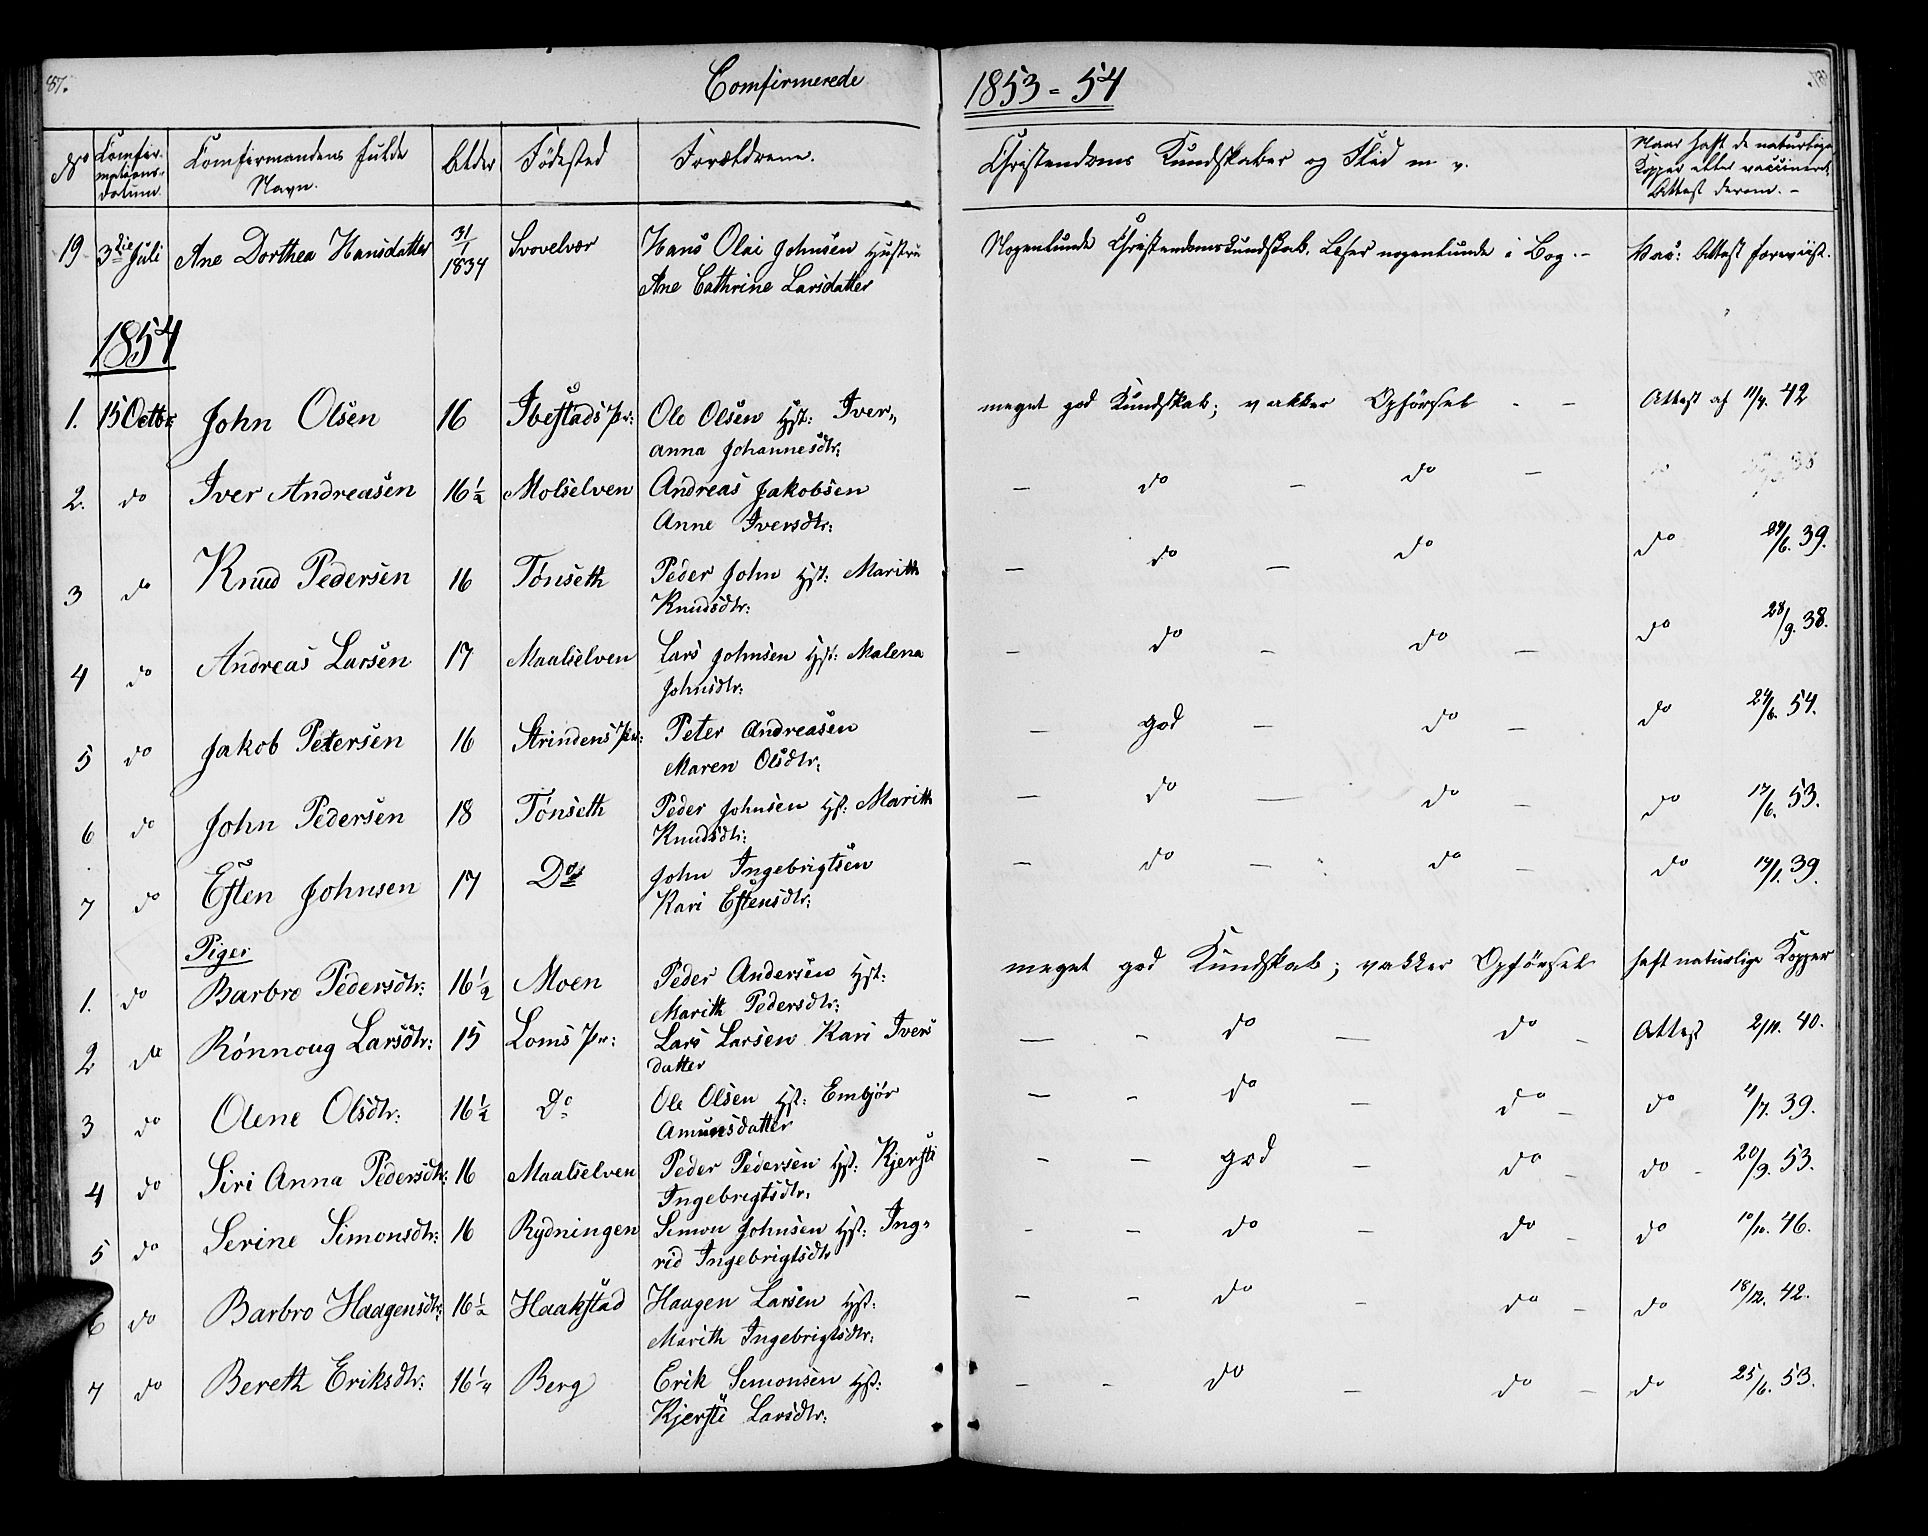 87.
Comfirmerede
1853 = 54
No Comfirmations-datum Comfirmandens fulde Navn. Alder Fødested Forældrene. Christendoms Kundskaber og Flid m v. Naar haft de naturlige Kopper eller vaccineret. Attest derom. -
19 3die Juli Ane Dorthea Hansdatter 31/1 1834 Svovelvær Hans Olai Johnsen Hustru Nogenlunde Christendomskundskab. Læser nogenlunde i Bog. - Vac: Attest foreviist.
Ane Cathrine Larsdatter
1854
1. 15 Octbr John Olsen 16 Ibestads Pr: Ole Olsen Hst: Iver- meget god Kundskab; vakker Opførsel - - Attest af 11/7. 42
anna Johannesdtr:
2. do Iver Andreasen 16½ Molselven Andreas Jakobsen - do - do - do
Anne Iversdtr:
3 do Knud Pedersen 16 Tønseth Peder John Hst: Marith - do - do do 24/6. 39.
Knudsdtr:
4 do Andreas Larsen 17 Maalselven Lars Johnsen Hst: Malena - do - do - do 28/9. 38.
Johnsdtr:
5 do Jakob Petersen 16 Strindens Pr: Peter Andreasen - god - do - do 24/6. 54.
Maren Olsdtr:
6 do John Pedersen 18 Tønseth Peder Johnsen Hst: Marith - do - do - do 17/6. 53.
Knudsdtr:
7 do Esten Johnsen 17 Do John Ingebrigtsen - do - do - do 17/1. 39.
Kari Estensdtr:
Piger
1. do Barbro Pedersdtr: 16½ Moen Peder Andersen Hst: meget god Kundskab; vakker Opførsel haft naturlige Kopper
Marith Pedersdtr:
2 do Rønnoug Larsdtr: 15 Loms Pr: Lars Larsen Kari Ivers - - do - do - Attest 2/11. 40.
datter
3 do Olene Olsdtr: 16½ Do Ole Olsen Hst: Embjør - - do - do - do 4/7. 39.
Amunsdatter
4 do Siri Anna Pedersdtr: 16 Maalselven Peder Pedersen Hst: Kjersti - - god - do - do - 20/9. 53.
Ingebrigtsdtr:
5 do Serine Simonsdtr: 16 Rydningen Simon Johnsen Hst: Ing- - - do - do - do 10/10. 46.
rid Ingebrigtsdtr
6 do Barbro Haagensdtr: 16½ Haakstad Haagen Larsen Hst: - - do - do - do 18/12. 42.
Marith Ingebrigtsdtr:
7 do Bereth Eriksdtr: 16¼ Berg Erik Simonsen Hst: - - do - do - do 25/6. 53.
Kjersti Larsdtr: